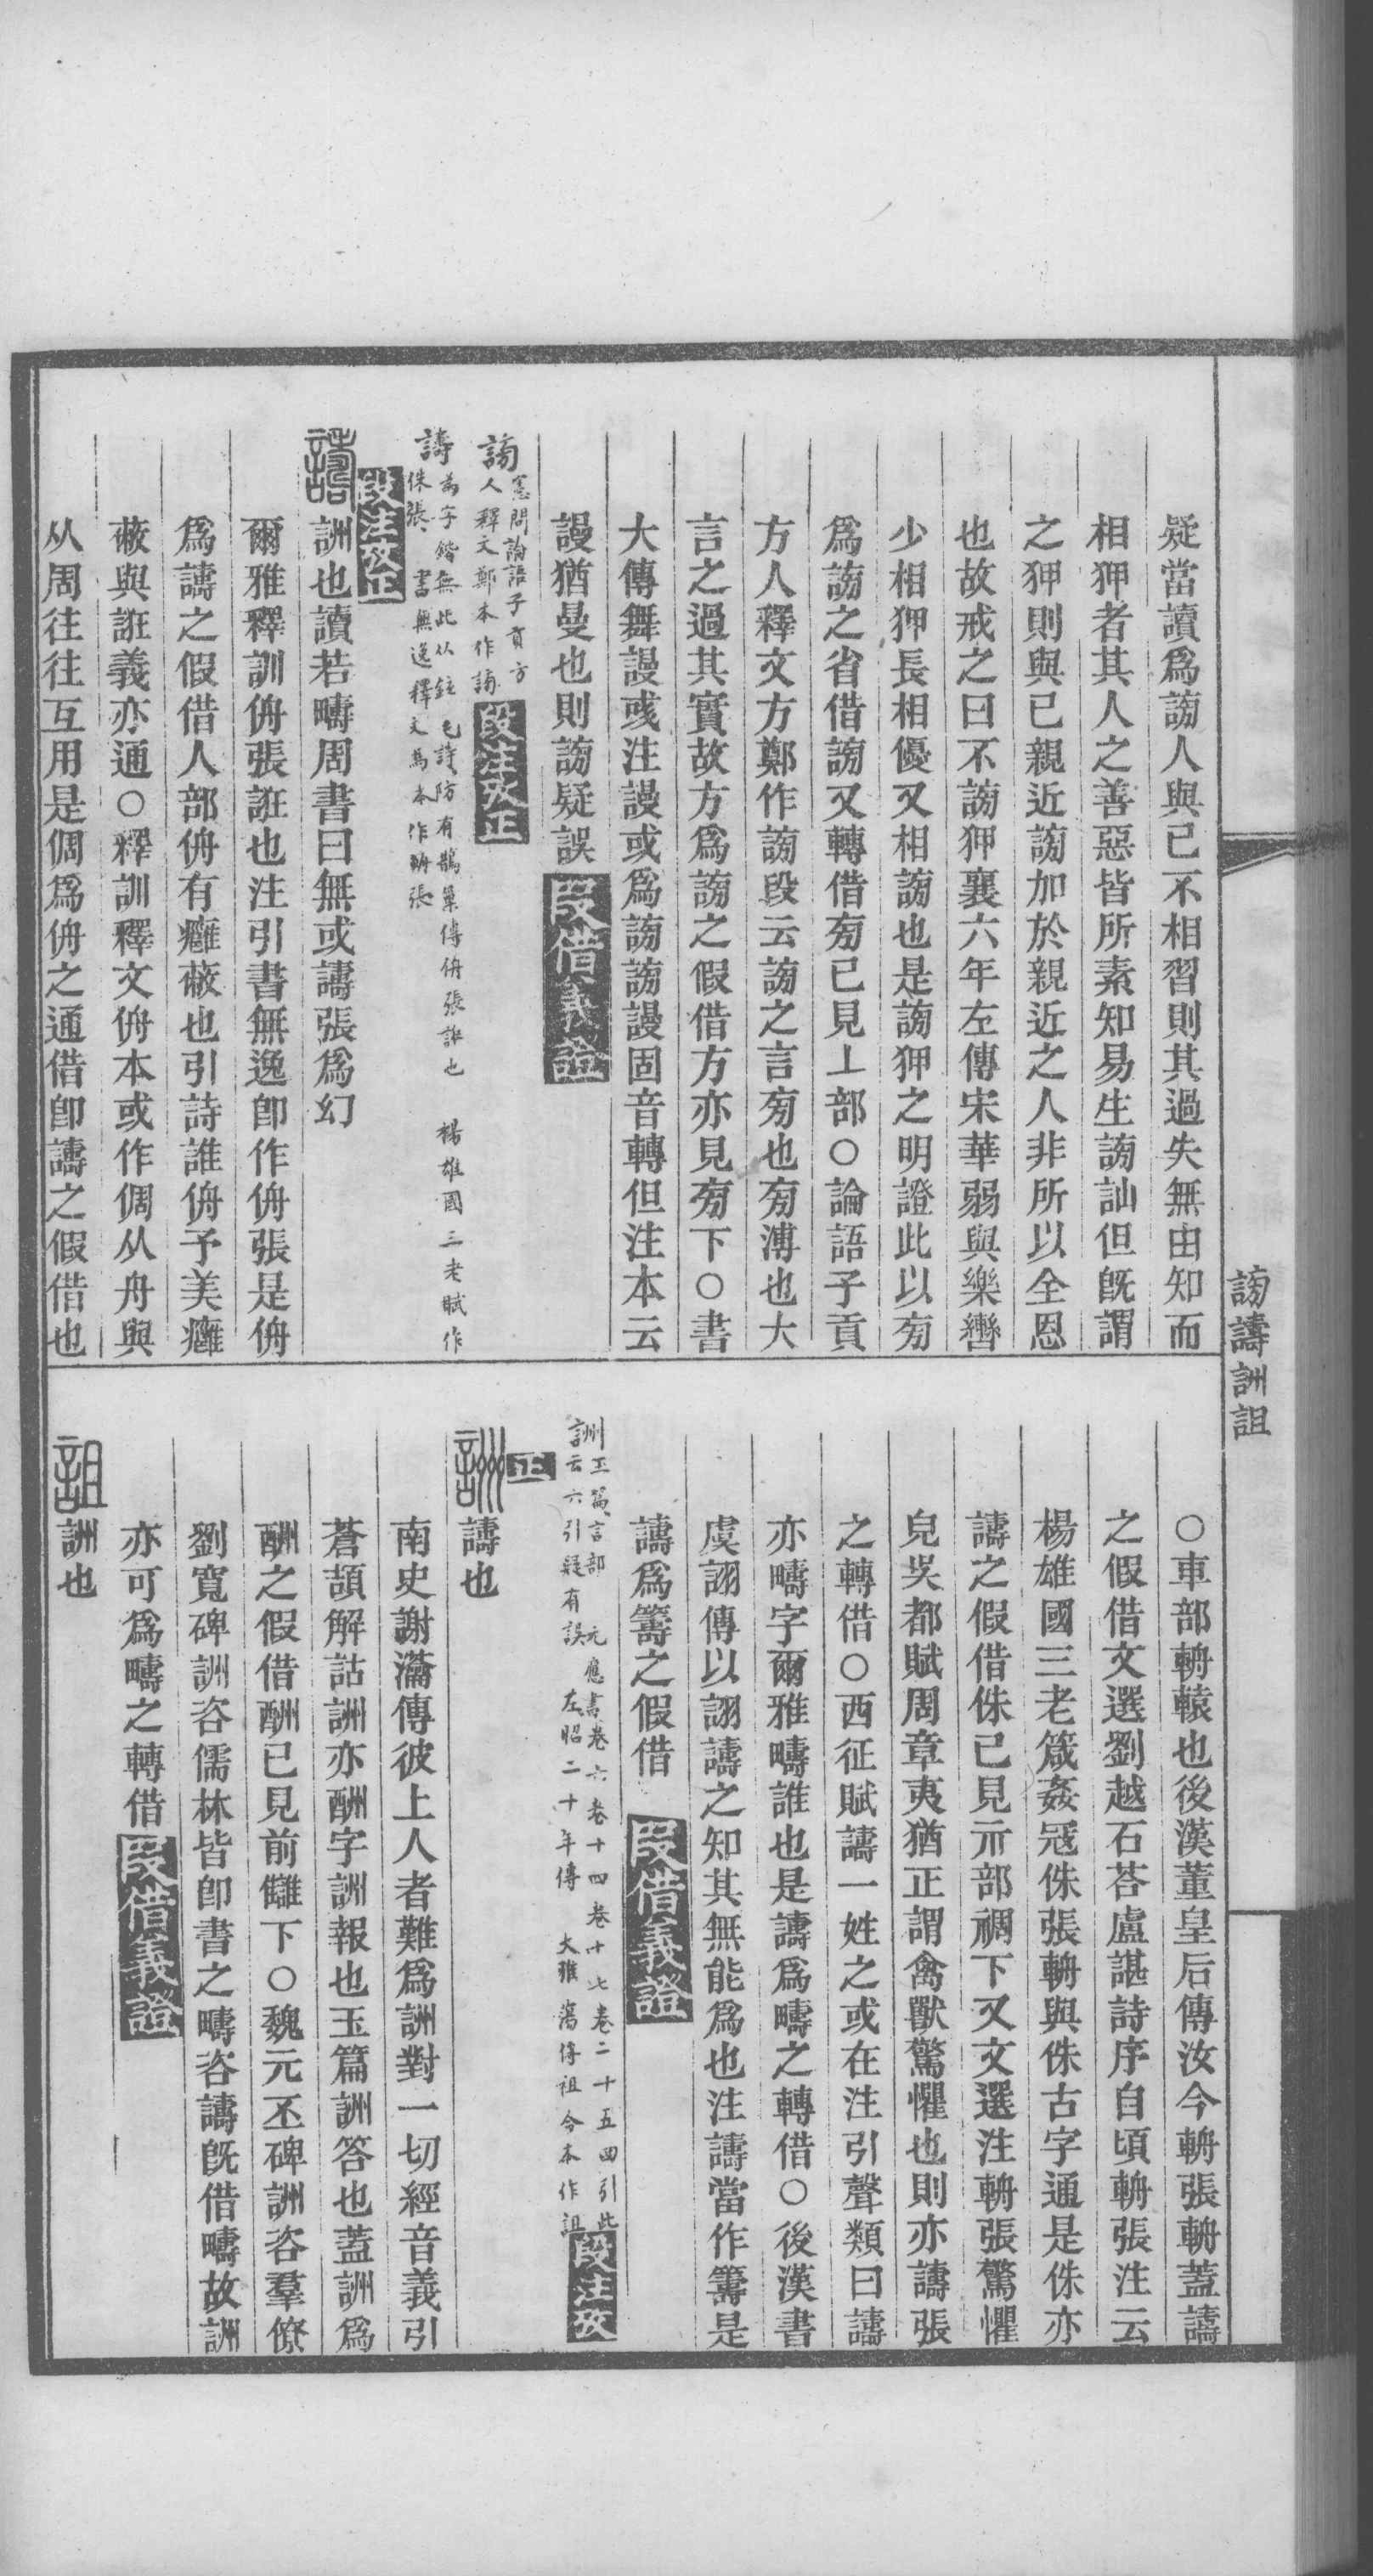 疑當讀爲謗人與已不相習則其過失無由知而
相狎者其人之善惡皆所素知易生謗訕但旣謂
之狎則與已親近謗加於親近之人非所以全恩
也故戒之曰不謗狎襄六年左傳宋華弱與樂轡
少相狎長相優又相謗也是謗狎之明證此以㫄
爲謗之省借謗又轉借㫄已見丄部○論語子貢
方人釋文方鄭作謗段云謗之言㫄也㫄溥也大
言之過其實故方爲謗之假借方亦見㫄下○書
大傳舞謾彧注謾或爲謗謗謾固音轉但注本云
謾猶曼也則謗疑誤 段借義證
謗 憲問論語子貢方
人釋文鄭本作謗 段注攷正
譸 爲字鍇無此从鉉 毛詩防有鵲巢傳侜張誑也 楊雄國三老賦作
侏張 書無逸釋文馬本作輈張
段注攷正
譸 詶也讀若疇周書曰無或譸張爲幻
爾雅釋訓侜張誑也注引書無逸卽作侜張是侜
爲譸之假借人部侜有癰蔽也引詩誰侜予美癰
蔽與誑義亦通○釋訓釋文侜本或作倜从舟與
从周往往互用是倜爲侜之通借卽譸之假借也
謗譸詶詛
○車部輈轅也後漢董皇后傳汝今輈張輈蓋譸
之假借文選劉越石荅盧諶詩序自頃輈張注云
楊雄國三老箴姦冦侏張輈與侏古字通是侏亦
譸之假借侏已見示部禂下又文選注輈張驚懼
皃吳都賦周章夷猶正謂禽獸驚懼也則亦譸張
之轉借○西征賦譸一姓之或在注引聲類曰譸
亦疇字爾雅疇誰也是譸爲疇之轉借○後漢書
虞詡傳以詡譸之知其無能爲也注譸當作籌是
譸爲籌之假借 段借義證
詶 玉篇言部 元應書卷六卷十四卷十七卷二十五四引此
言云六引疑有誤 左昭二十年傳 大雅蕩傳祖今本作詛 段注攷
正
詶 譸也
南史謝瀹傳彼上人者難爲詶對一切經音義引
蒼頡解詁詶亦酬字詶報也玉篇詶答也蓋詶爲
酬之假借酬已見前讎下○魏元丕碑詶咨羣僚
劉寬碑詶咨儒林皆卽書之疇咨譸旣借疇故詶
亦可爲疇之轉借 段借義證
詛 詶也